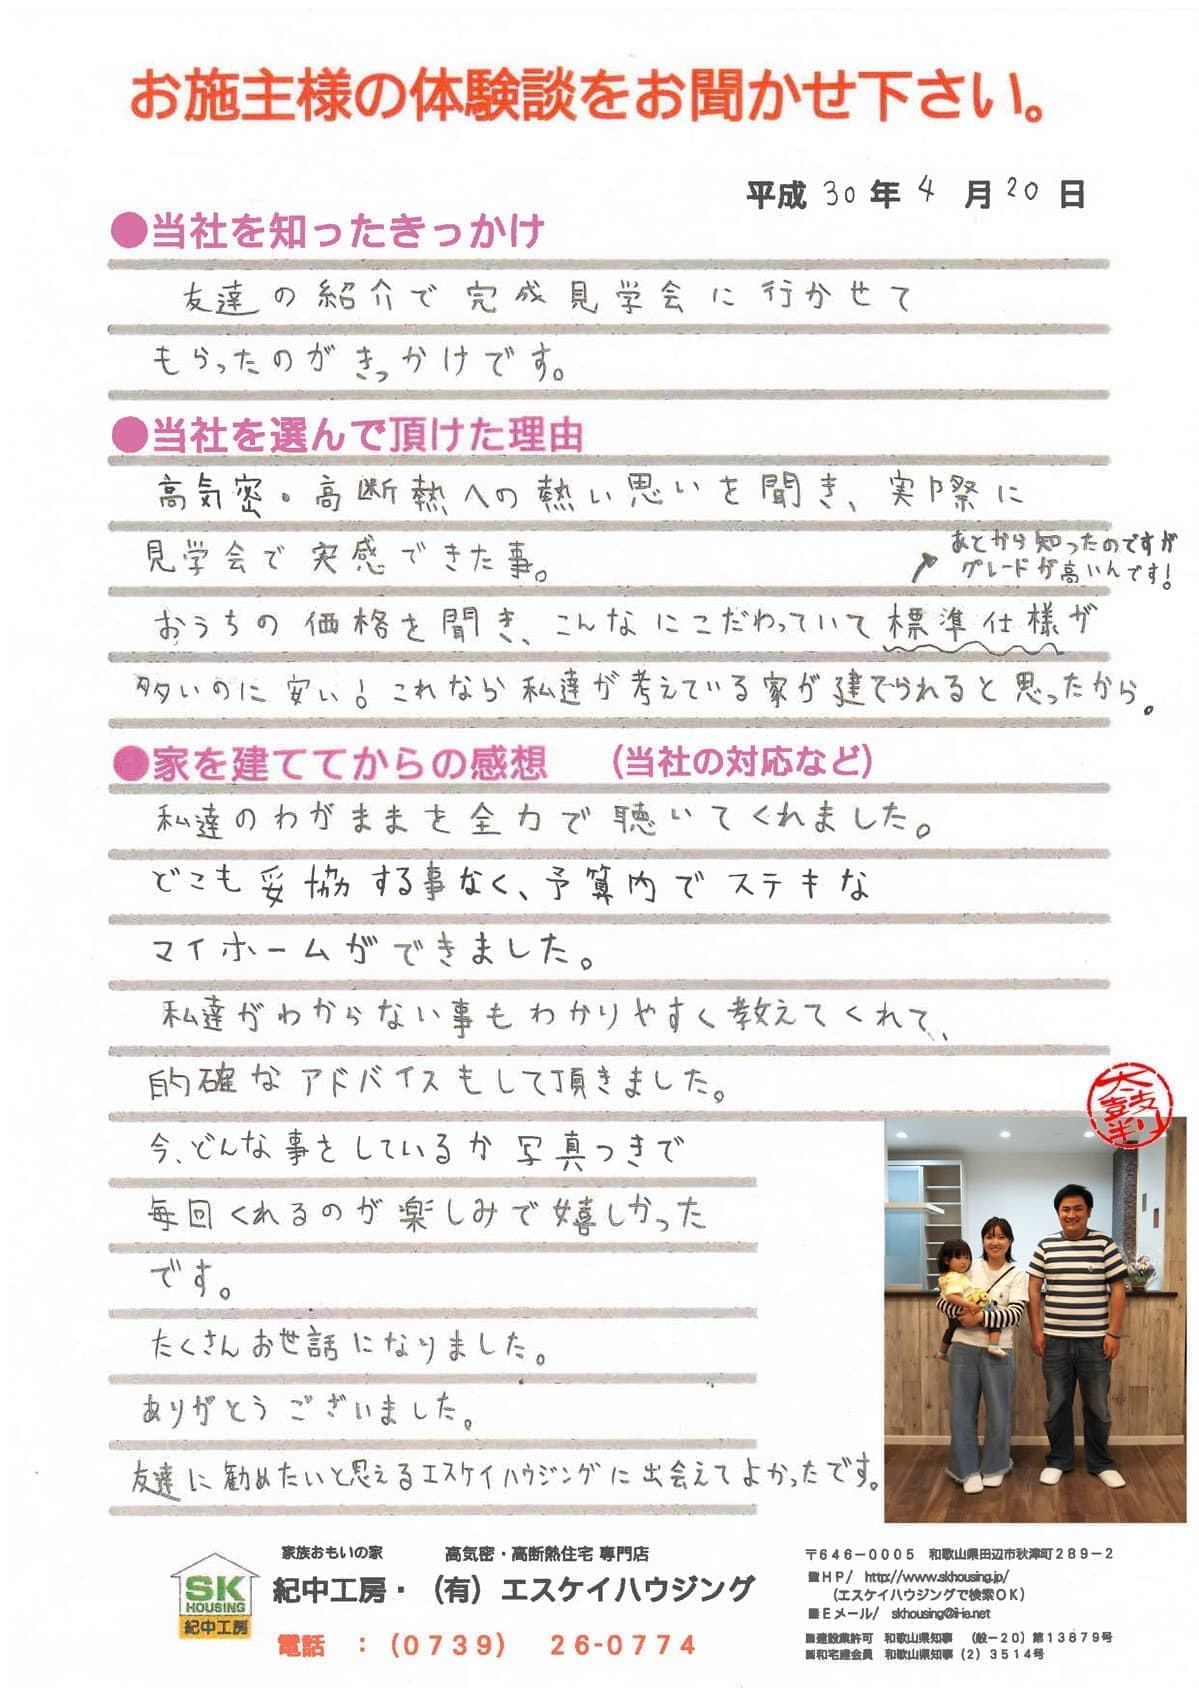 お施主様の体験談をお聞かせ下さい。
平成 30 年 4 月 20 日
●当社を知ったきっかけ
友達の紹介で完成見学会に行かせて
もらったのがきっかけです。
●当社を選んで頂けた理由
高気密・高断熱への熱い思いを聞き、実際に
見学会で実感できた事。
あとから知ったのですが
グレードが高いんです!
おうちの価格を聞き、こんなにこだわっていて標準仕様が
多いのに安い!これなら私達が考えている家が建てられると思ったから。
●家を建ててからの感想 (当社の対応など)
私達のわがままを全力で聴いてくれました。
どこも妥協する事なく、予算内でステキな
マイホームができました。
私達がわからない事もわかりやすく教えてくれて、
的確なアドバイスもして頂きました。
今、どんな事をしているか写真つきで
毎回くれるのが楽しみで嬉しかった
です。
たくさんお世話になりました。
ありがとうございました。
友達に勧めたいと思えるエスケイハウジングに出会えてよかったです。
太鼓判
SK
HOUSING
紀中工房
家族おもいの家 高気密・高断熱住宅 専門店
紀中工房・(有)エスケイハウジング
電話 :(0739) 26-0774
〒646-0005 和歌山県田辺市秋津町289-2
■HP/ http://www.skhousing.jp/
(エスケイハウジングで検索OK)
■Eメール/ skhousing@i-ie.net
■建設業許可 和歌山県知事 (般-20)第13879号
■和宅建会員 和歌山県知事(2)3514号